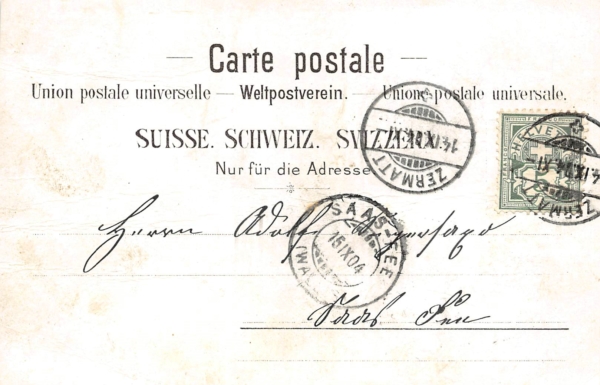 — Carte postale —
Union postale universelle — Weltpostverein. — Unione postale universale.
SUISSE. SCHWEIZ. SVIZZERA.
Nur für die Adresse
ZERMATT
14.IX.04.XI
HELVETIA
ZERMATT
14.IX.04.XI
SAAS-FEE
15 IX 04
Herrn Adolf
Saas Fee